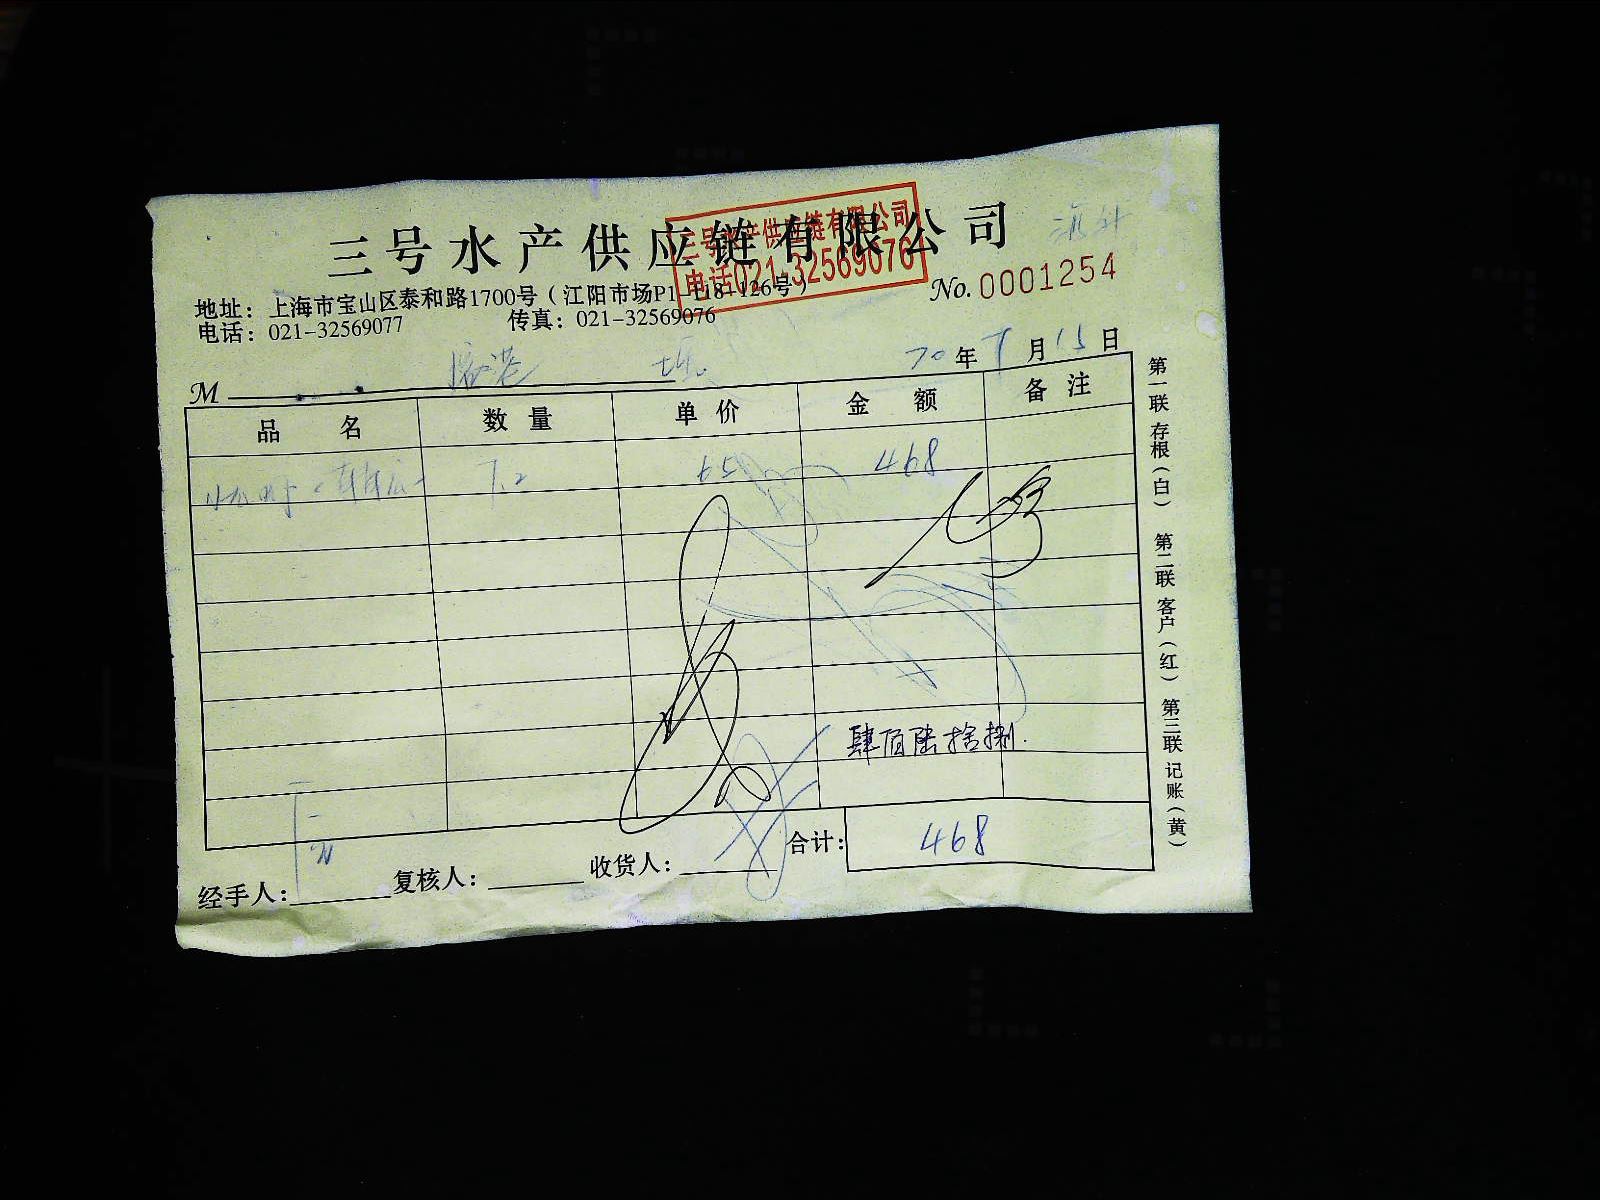 三号水产供应链有限公司
三号水产供应链有限公司
电话021-32569076
地址：上海市宝山区泰和路1700号（江阳市场P1-118-126号）
No.0001254
电话：021-32569077 传真：021-32569076
M
年 月 15 日
品名 数量 单价 金额 备注
7.2 65 468
肆佰陆拾捌.
合计： 468
经手人： 复核人： 收货人：
第一联 存根（白） 第二联 客户（红） 第三联 记账（黄）